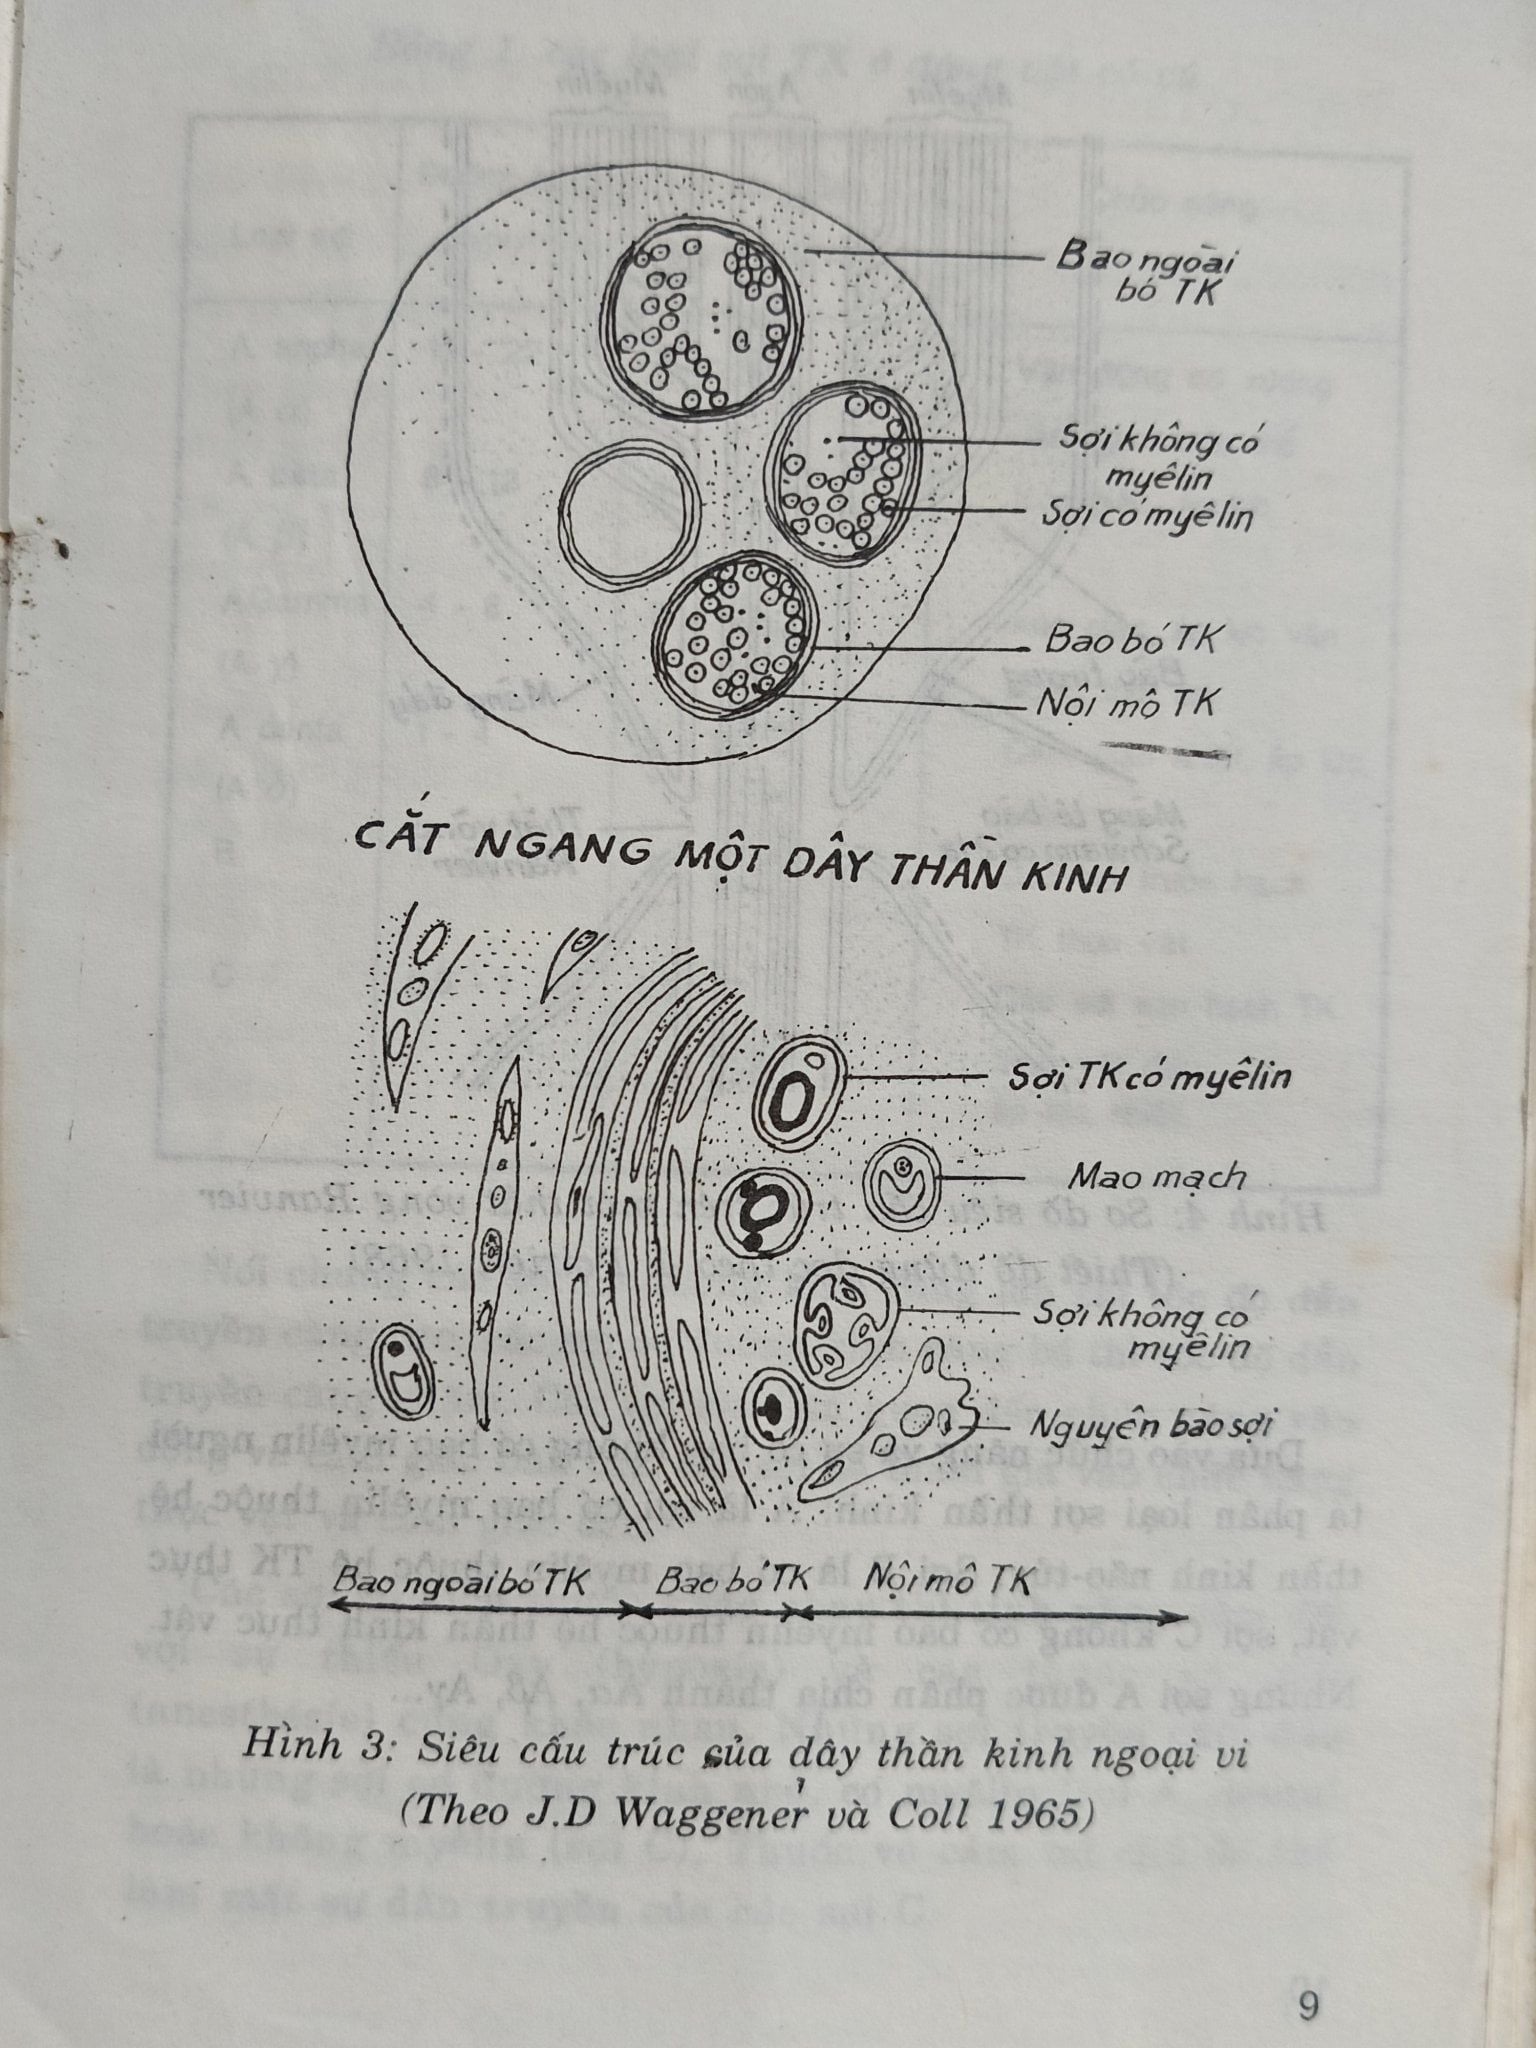 Bao ngoài
bó TK
Sợi không có
myêlin
Sợi có myêlin
Bao bó TK
Nội mô TK
CẮT NGANG MỘT DÂY THẦN KINH
Sợi TK có myêlin
Mao mạch
Sợi không có
myêlin
Nguyên bào sợi
Bao ngoài bó TK
Bao bó TK
Nội mô TK
Hình 3: Siêu cấu trúc của dây thần kinh ngoại vi
(Theo J.D Waggener và Coll 1965)
9